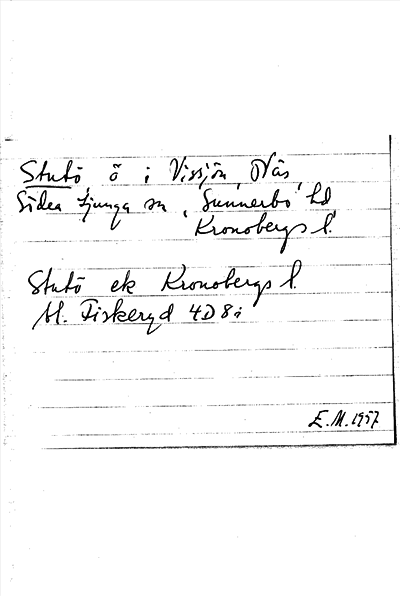 Stutö ö i Vissjön, Näs,
Södra Ljunga sn, Sunnerbo hd
Kronobergs l.
Stutö ek Kronobergs l.
bl. Fiskeryd 4D8i
E.M. 1957